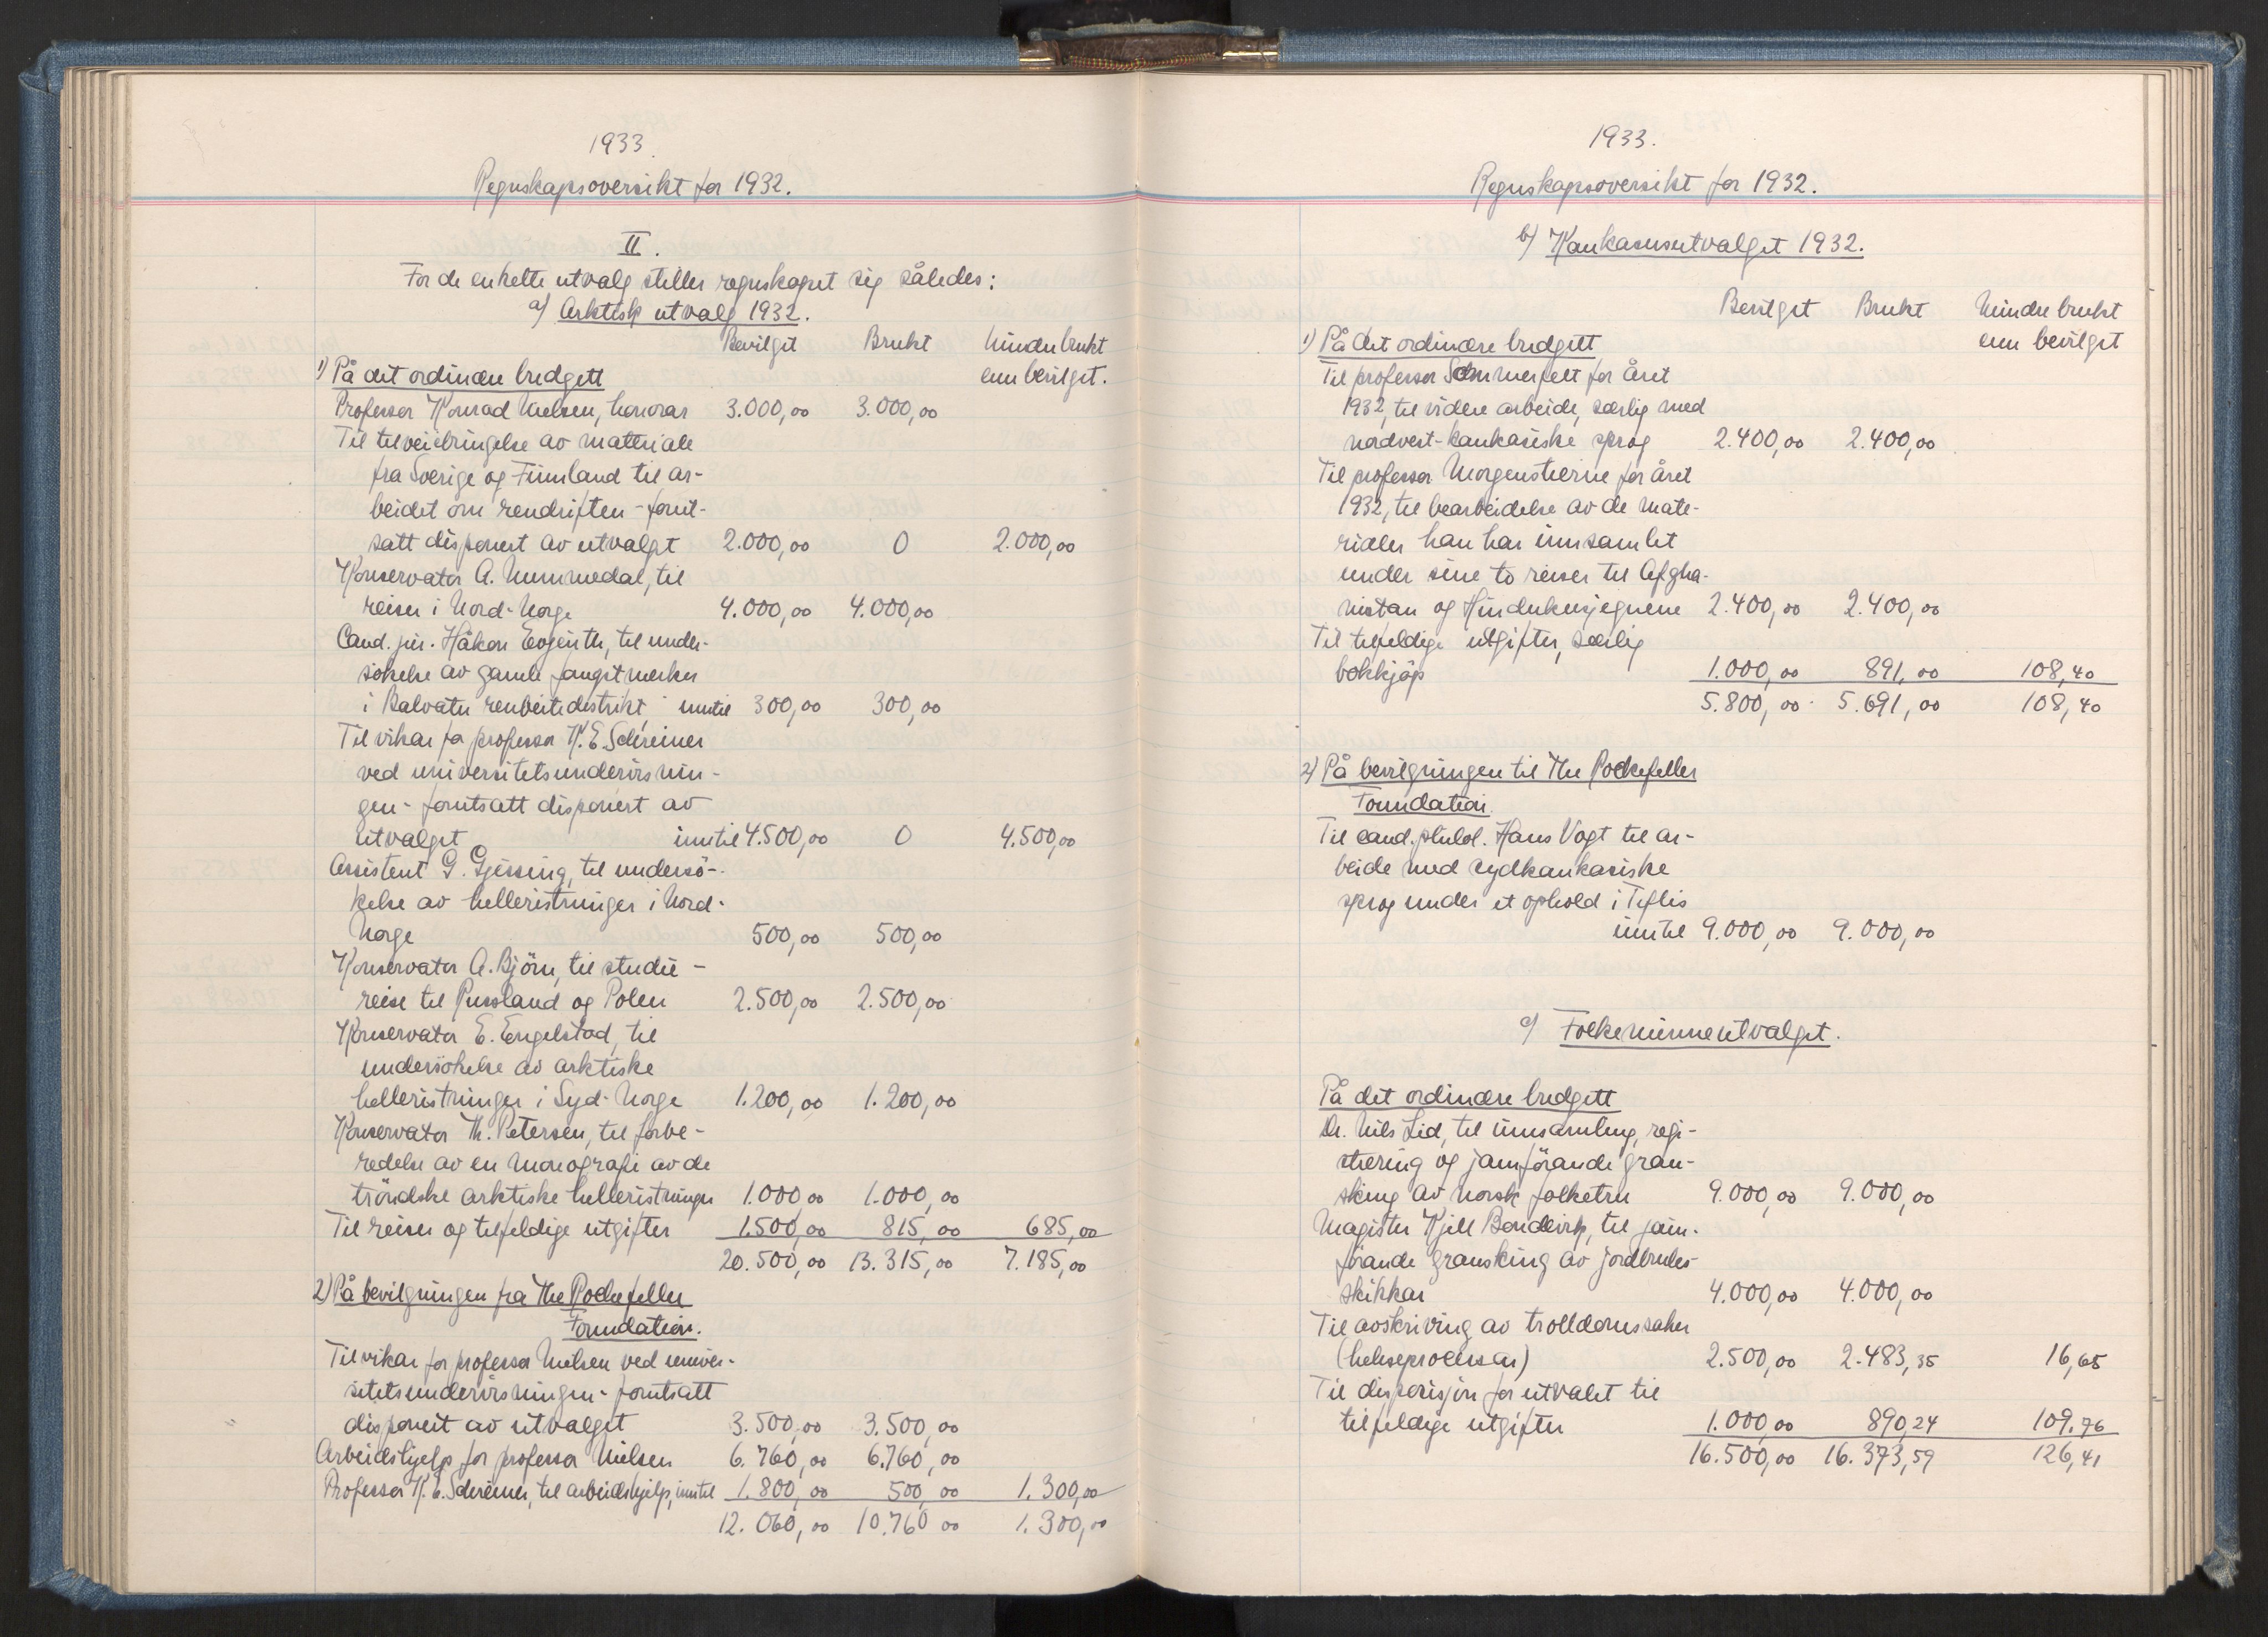 1933.
Regnskapsoversikt for 1932.
II.
For de enkelte utvalg stiller regnskapet sig således:
a) Arktisk utvalg 1932.
Bevilget Brukt Mindre brukt
1) På det ordinære budgett enn bevilget.
Professor Konrad Nielsen, honorar 3.000,00 3.000,00
Til tilveiebringelse av materiale
fra Sverige og Finnland til ar-
beidet om rendriften - fort-
satt disponert av utvalget 2.000,00 0 2.000,00
Konservator A. Nummedal, til
reiser i Nord-Norge 4.000,00 4.000,00
Cand. jur. Håkon Evjenth, til under-
søkelse av gamle fangstmerker
i Balvatn renbeitedistrikt, inntil 300,00 300,00
Til vikar for professor K. E. Schreiner
ved universitetsundervisnin-
gen - fortsatt disponert av
utvalget inntil 4.500,00 0 4.500,00
Assistent G. Gjessing, til undersö-
kelse av helleristninger i Nord-
Norge 500,00 500,00
Konservator A. Björn, til studie-
reise til Russland og Polen 2.500,00 2.500,00
Konservator E. Engelstad, til
undersökelse av arktiske
helleristninger i Syd-Norge 1.200,00 1.200,00
Konservator Th. Petersen, til forbe-
redelse av en monografi av de
tröndske arktiske helleristninger 1.000,00 1.000,00
Til reiser og tilfeldige utgifter 1.500,00 815,00 685,00
20.500,00 13.315,00 7.185,00
2) På bevilgningen fra The Rockefeller
Foundation.
Til vikar for professor Nielsen ved univer-
sitetsundervisningen - fortsatt
disponert av utvalget 3.500,00 3.500,00
Arbeidshjelp for professor Nielsen 6.760,00 6.760,00
Professor K. E. Schreiner, til arbeidshjelp, inntil 1.800,00 500,00 1.300,00
12.060,00 10.760,00 1.300,00
1933.
Regnskapsoversikt for 1932.
b) Kaukasusutvalget 1932.
Bevilget Brukt Mindre brukt
1) På det ordinære budgett enn bevilget
Til professor Sommerfelt for året
1932, til videre arbeide, særlig med
nordvest-kaukasiske sprog 2.400,00 2.400,00
Til professor Morgenstierne for året
1932, til bearbeidelse av de mate-
rialer han har innsamlet
under sine to reiser til Afgha-
nistan og Hindukusjegnene 2.400,00 2.400,00
Til tilfeldige utgifter, særlig
bokkjöp 1.000,00 891,00 108,40
5.800,00 5.691,00 108,40
2) På bevilgningen til The Rockefeller
Foundation.
Til cand. philol. Hans Vogt til ar-
beide med sydkaukasiske
sprog under et ophold i Tiflis
inntil 9.000,00 9.000,00
c) Folkeminneutvalget.
På det ordinære budgett
Dr. Nils Lid, til innsamling, regi-
strering og jamförande gran-
sking av norsk folketru 9.000,00 9.000,00
Magister Kjell Bondevik, til jam-
förande gransking av jordbruks-
skikkar 4.000,00 4.000,00
Til avskriving av trolldomssaker
(hekseprocessar) 2.500,00 2.483,35 16,65
Til disposisjon for utvalet til
tilfeldige utgifter 1.000,00 890,24 109,76
16.500,00 16.373,59 126,41